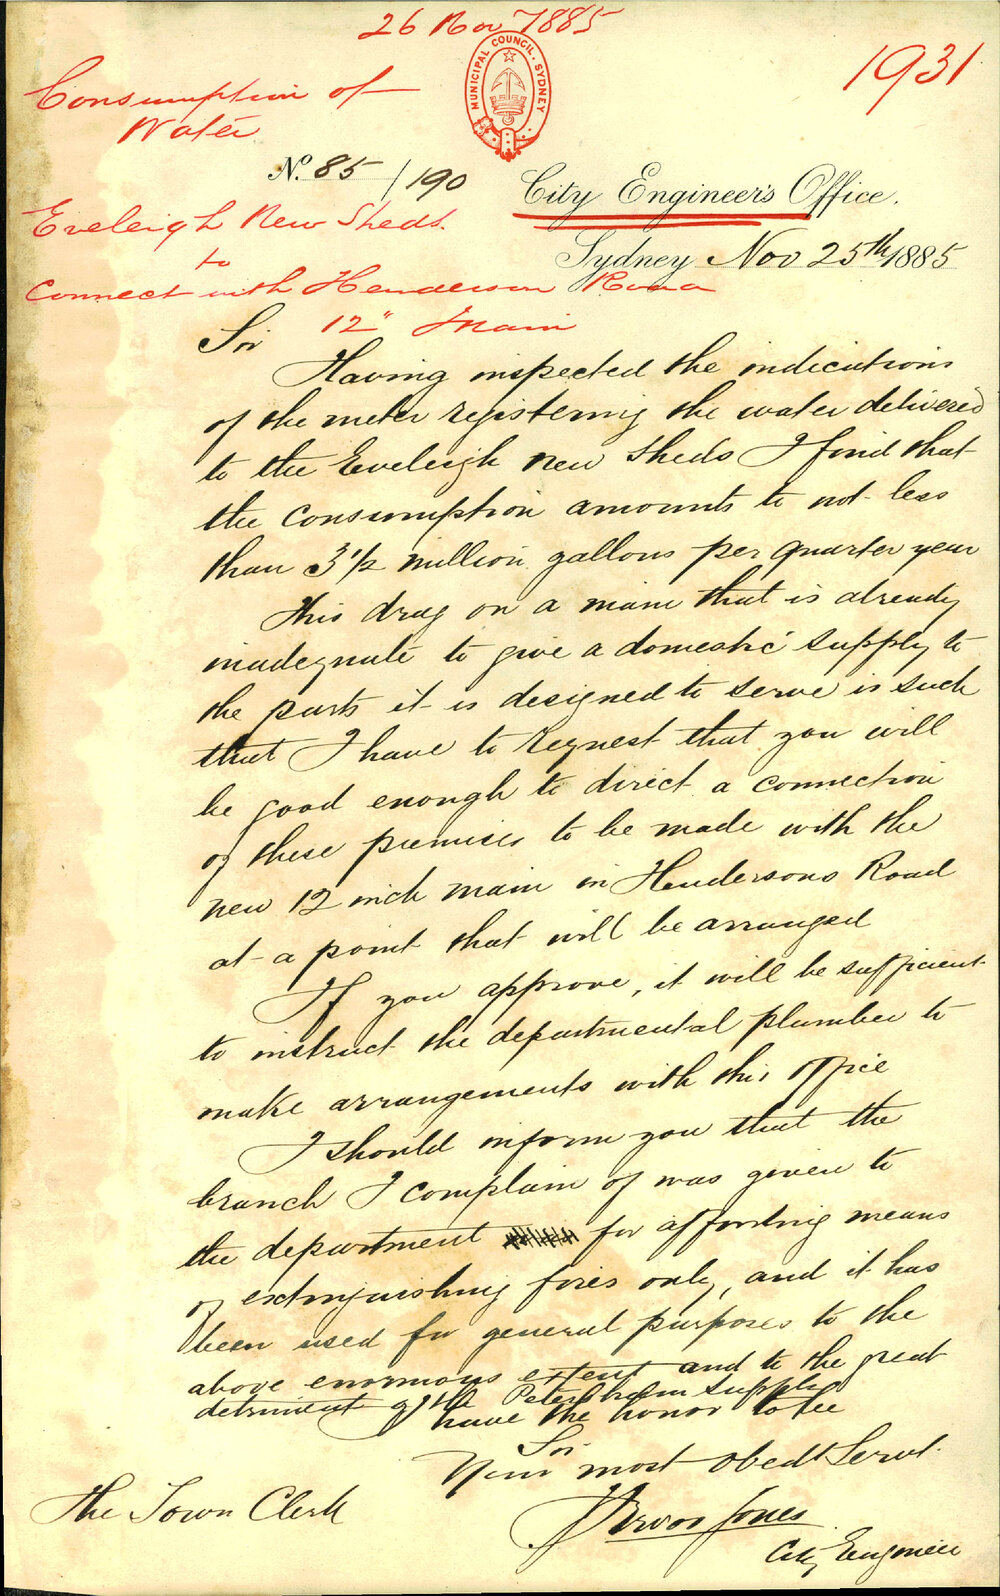 26 Nov 1885
1931
MUNICIPAL COUNCIL. SYDNEY
Consumption of
Water
No. 85/190
City Engineer's Office.
Eveleigh New Sheds.
to
Connect with Henderson Road
12" Main
Sydney Nov 25th 1885
Sir
Having inspected the indications
of the meter registering the water delivered
to the Eveleigh new sheds I find that
the consumption amounts to not less
than 3 1/2 million gallons per quarter year
This drag on a main that is already
inadequate to give a domestic supply to
the parts it is designed to serve is such
that I have to request that you will
be good enough to direct a connection
of these premises to be made with the
new 12 inch main in Hendersons Road
at a point that will be arranged
If you approve, it will be sufficient
to instruct the departmental plumber to
make arrangements with this office
I should inform you that the
branch I complain of was given to
the department for affording means
of extinguishing fires only, and it has
been used for general purposes to the
above enormous extent and to the great
detriment of the Petersham supply
I have the honor to be
Sir
Your most obedt Servt.
Trevor Jones
City Engineer
The Town Clerk